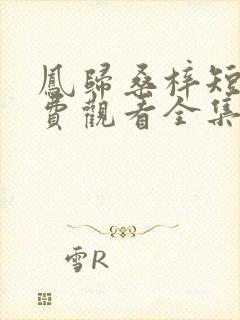 鳳歸桑梓短
費觀看全集
雪R